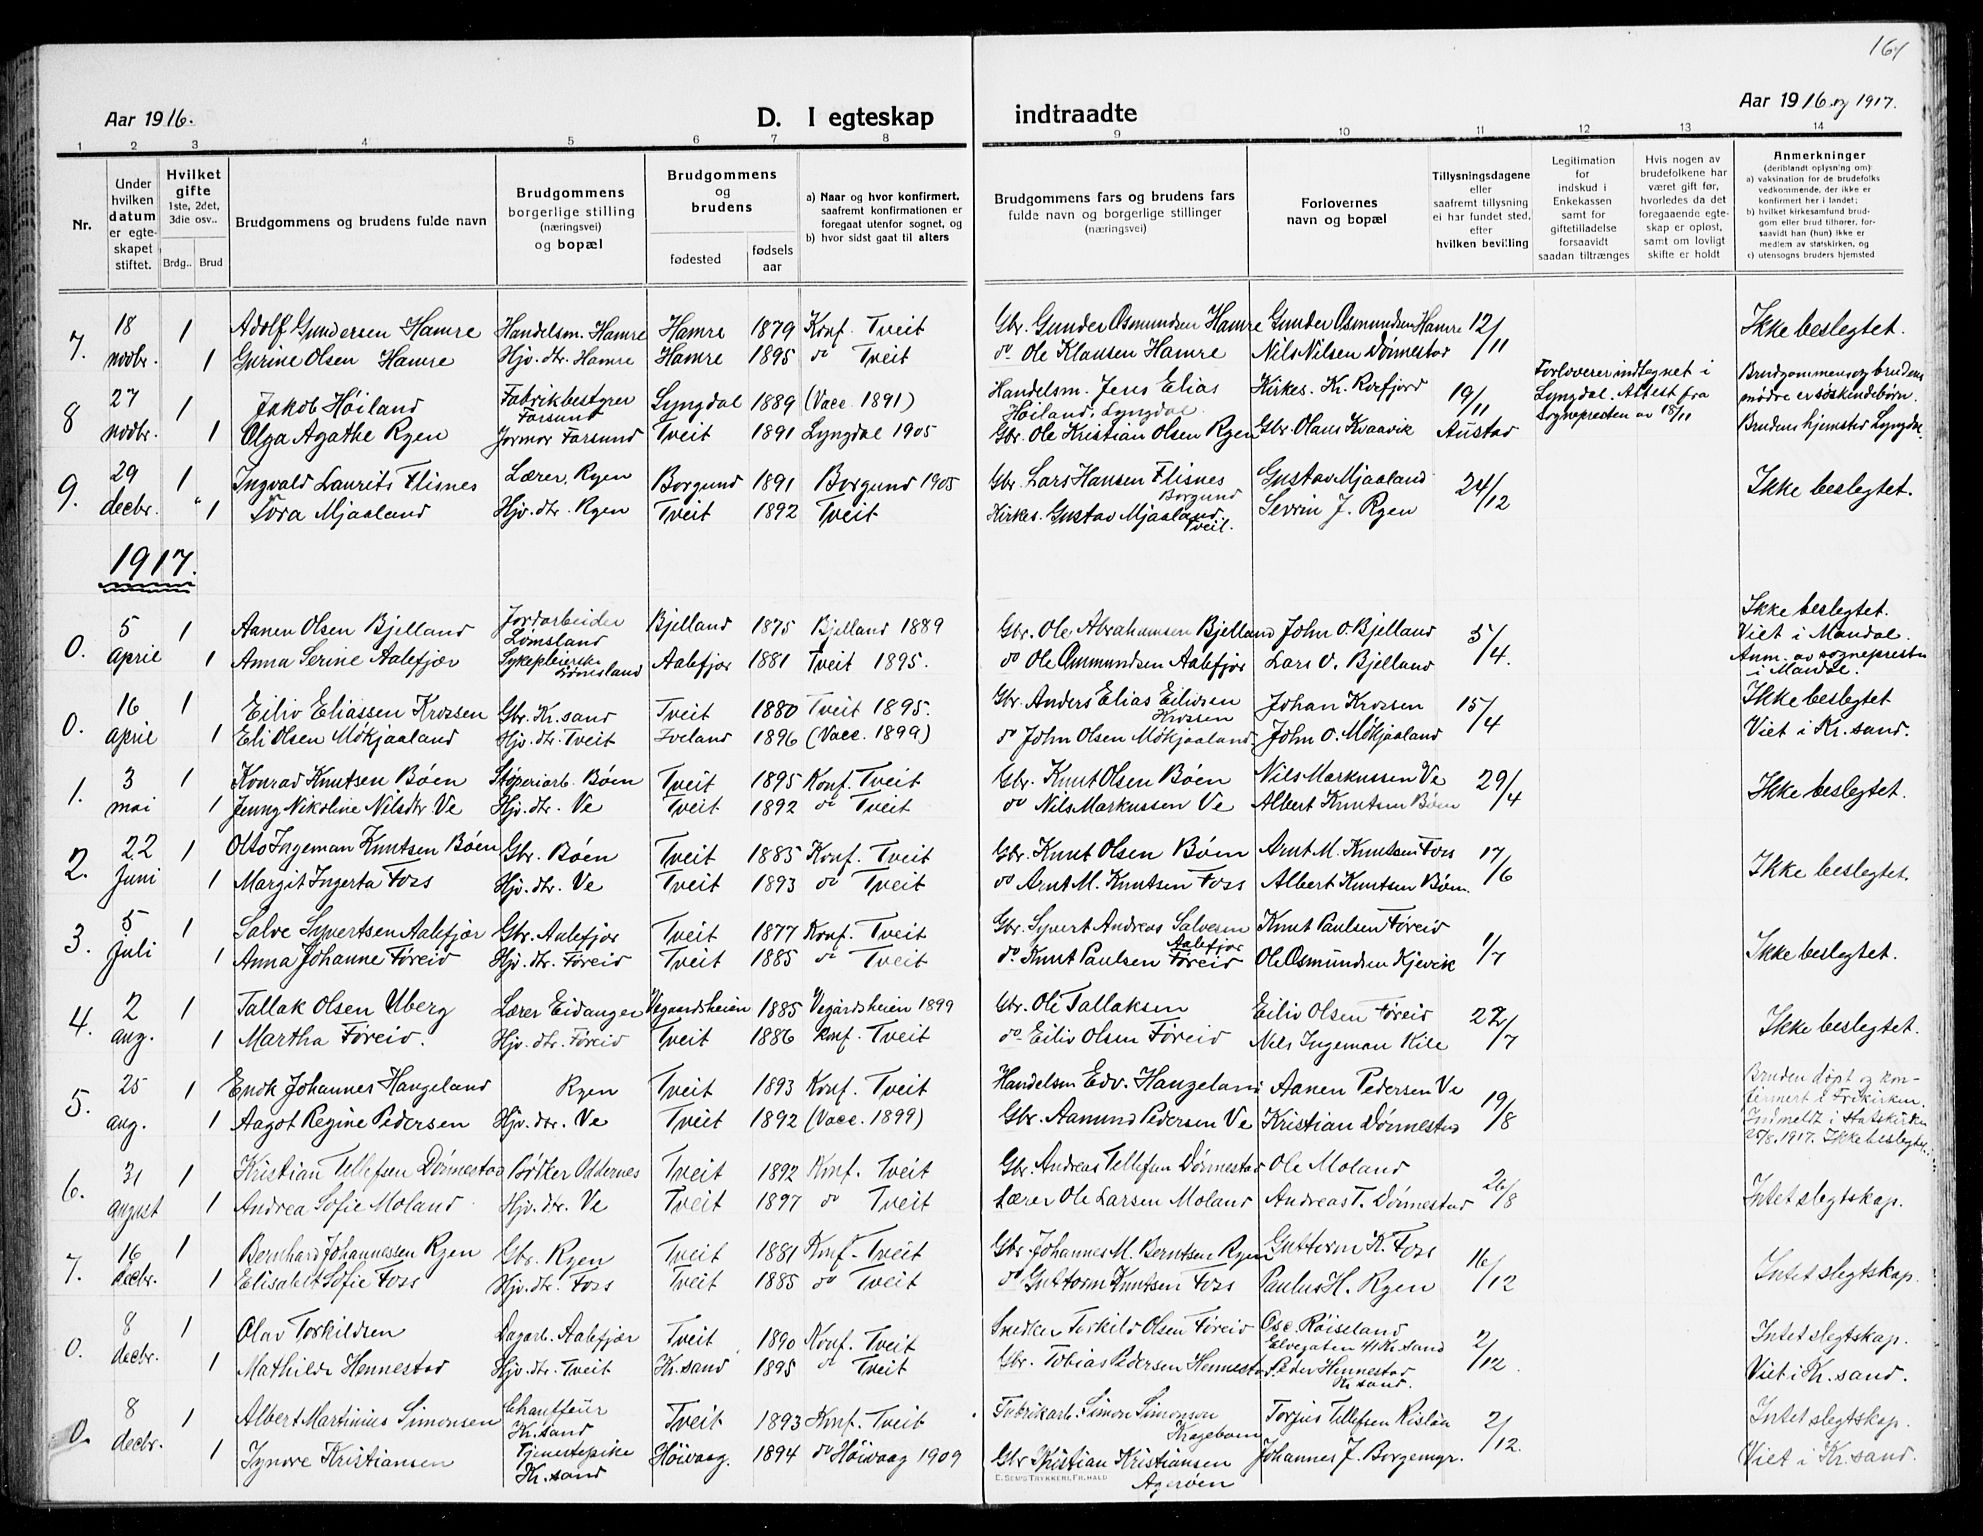 161
Aar 1916.
D. I egteskap indtraadte
Aar 1916 og 1917.
1 2 3 4 5 6 7 8 9 10 11 12 13 14
Nr.
Under hvilken datum er egteskapet stiftet.
Hvilket gifte 1ste, 2det, 3die osv..
Brdg.. Brud
Brudgommens og brudens fulde navn
Brudgommens borgerlige stilling (næringsvei) og bopæl
Brudgommens og brudens
fødested
fødselsaar
a) Naar og hvor konfirmert, saafremt konfirmationen er foregaat utenfor sognet, og
b) hvor sidst gaat til alters
Brudgommens fars og brudens fars fulde navn og borgerlige stillinger (næringsvei)
Forlovernes navn og bopæl
Tillysningsdagene eller saafremt tillysning ei har fundet sted, efter hvilken bevilling
Legitimation for indskud i Enkekassen samt for giftetilladelse forsaavidt saadan tiltrænges
Hvis nogen av brudefolkene har været gift før, hvorledes da det foregaaende egteskap er opløst, samt om lovlig skifte er holdt
Anmerkninger (deriblandt oplysning om):
a) vaksination for de brudefolks vedkommende, der ikke er konfirmert her i landet;
b) hvilket kirkesamfund brudgom eller brud tilhører, forsaavidt han (hun) ikke er medlem av statskirken, og
c) utensogns bruders hjemsted
7. 18 1 Adolf Gundersen Hamre Handelsm. Hamre Hamre 1879 Konf. Tveit Gbr. Gunder Osmundsen Hamre Gunder Osmundsen Hamre 12/11 Ikke beslegtet.
novbr. 1 Gurine Olsen Hamre Hjv. dtr. Hamre Hamre 1895 do Tveit do Ole Klausen Hamre Nils Nilsen Dønnestad
8 27 1 Jakob Höiland Fabrikbestyrer Farsund Lyngdal 1889 (Vacc. 1891) Handelsm. Jens Elias Höiland, Lyngdal Kirkes. K. Rofjord 19/11 Forloverer indtegnet i Lyngdal. Attest fra Sognepresten av 18/11 Brudgommens og brudens mödre er söskendebörn.
novbr. 1 Olga Agathe Ryen Jormor Farsund Tveit 1891 Lyngdal 1905 Gbr. Ole Kristian Olsen Ryen Gbr. Olaus Kvaavik Austad Brudens hjemsted Lyngdal.
9. 29 1 Ingvald Laurits Flisnes Lærer, Ryen Borgund 1891 Borgund 1905 Gbr. Lars Hansen Flisnes Borgund Gustav Mjaaland 24/12 Ikke beslegtet.
decbr. " 1 Tora Mjaaland Hjv. dtr. Ryen Tveit 1892 Tveit Kirkes. Gustav Mjaaland, Tveit. Sevrin J. Ryen
1917.
0. 5 1 Aanen Olsen Bjelland Jordarbeider Lömsland Bjelland 1875 Bjelland 1889 Gbr. Ole Abrahamsen Bjelland John O. Bjelland 5/4. Ikke beslegtet. Viet i Mandal.
april 1 Anna Serine Aalefjær Sykepleierske Lömsland Aalefjær 1881 Tveit 1895. do Ole Osmundsen Aalefjær Lars O. Bjelland Anm. av sognepresten i Mandal.
0. 16 1 Eiliv Eliassen Krossen Gbr. Kr.sand Tveit 1880 Tveit 1895. Gbr. Anders Elias Eilivsen Krossen Johan Krossen 15/4 Ikke beslegtet
april 1 Eli Olsen Mökjaaland Hjv. dtr. Tveit Iveland 1896 (Vacc. 1899) do John Olsen Mökjaaland John O. Mökjaaland Viet i Kr.sand.
1. 3 1 Konrad Knutsen Böen Stöperiarb. Böen Tveit 1895 Konf. Tveit Gbr. Knut Olsen Böen Nils Markussen Ve 29/4 Ikke beslegtet.
mai 1 Jenny Nikoline Nilsdr. Ve Hjv. dtr. Ve Tveit 1892 do Tveit do Nils Markussen Ve Albert Knutsen Böen
2. 22 1 Otto Ingeman Knutsen Böen Gbr. Böen Tveit 1885 Konf. Tveit Gbr. Knut Olsen Böen Arnt M. Knutsen Foss 17/6 Ikke beslegtet.
Juni 1 Margit Ingerta Foss Hjv. dtr. Ve Tveit 1893 do Tveit do Arnt M. Knutsen Foss Albert Knutsen Böen
3. 5 1 Salve Syvertsen Aalefjær Gbr. Aalefjær Tveit 1877 Konf. Tveit Gbr. Syvert Andreas Salvesen Aalefjær Knut Paulsen Föreid 1/7 Ikke beslegtet.
Juli 1 Anna Johanne Föreid Hjv. dtr. Föreid Tveit 1885 do Tveit do. Knut Paulsen Föreid Ole Osmundsen Kjevik
4. 2 1 Tallak Olsen Uberg Lærer Eidanger Vegaardsheien 1885 Vegårdsheien 1899 Gbr. Ole Tallaksen Eiliv Olsen Föreid 22/7 Ikke beslegtet.
aug. 1 Martha Föreid. Hjv. dtr. Föreid Tveit 1886 Konf. Tveit do Eiliv Olsen Föreid Nils Ingeman Kile
5. 25 1 Endk Johannes Haugeland Ryen Tveit 1893 Konf. Tveit Handelsm Edv. Haugeland Aanen Pedersen Ve 19/8 Bruden döpt og konfirmert i Frikirken.
aug. 1 Aagot Regine Pedersen Hjv. dtr. Ve Tveit 1892 (Vacc. 1899) Gbr. Aamund Pedersen Ve Kristian Dönnestad Indmeldt i Statskirken 25/8. 1917. Ikke beslegtet.
6. 31 1 Kristian Tellefsen Dönnestad Bödker Oddernes Tveit 1892 Konf. Tveit Gbr. Andreas Tellefsen Dönnestad Ole Moland 26/8 Intet slegtskap.
august 1 Andrea Sofie Moland Hjv. dtr. Ve Tveit 1897 do Tveit Lærer Ole Larsen Moland Andreas T. Dönnestad
7. 16 1 Bernhard Johannessen Ryen Gbr. Ryen Tveit 1881 Konf. Tveit Gbr. Johannes M. Berntsen Ryen Guttorm K. Foss 16/12 Intet slegtskap.
decbr. 1 Elisabet Sofie Foss Hjv. dtr. Foss Tveit 1885 do Tveit do Guttorm Knutsen Foss Paulus H. Ryen
0. 8 1 Olav Torkildsen Dagarb. Aalefjær Tveit 1890 Konf. Tveit Snedker Torkild Olsen Föreid Osc. Röiseland Elvegaten 41 Kr.sand 2/12. Intet slegtskap.
decbr. 1 Mathilde Hennestad Hjv. dtr. Tveit Kr.sand 1895 do Tveit Gbr. Tobias Pedersen Hennestad Peder Hennestad Kr.sand. Viet i Kr.sand.
0. 8 1 Albert Martinius Simonsen Chauffeur Kr.sand Tveit 1893 Konf. Tveit Fabrikarb. Simon Simonsen Krageboen Torjus Tellefsen Risløa 2/12. Intet slegtskap
decbr. 1 Synöve Kristiansen Tjenestepike Kr.sand Höivaag. 1894 do Höivaag 1909 Gbr Kristian Kristiansen Ageröen Johannes J. Borgemyr. Viet i Kr.sand.
E. SEM'S TRYKKERI, FR.HALD